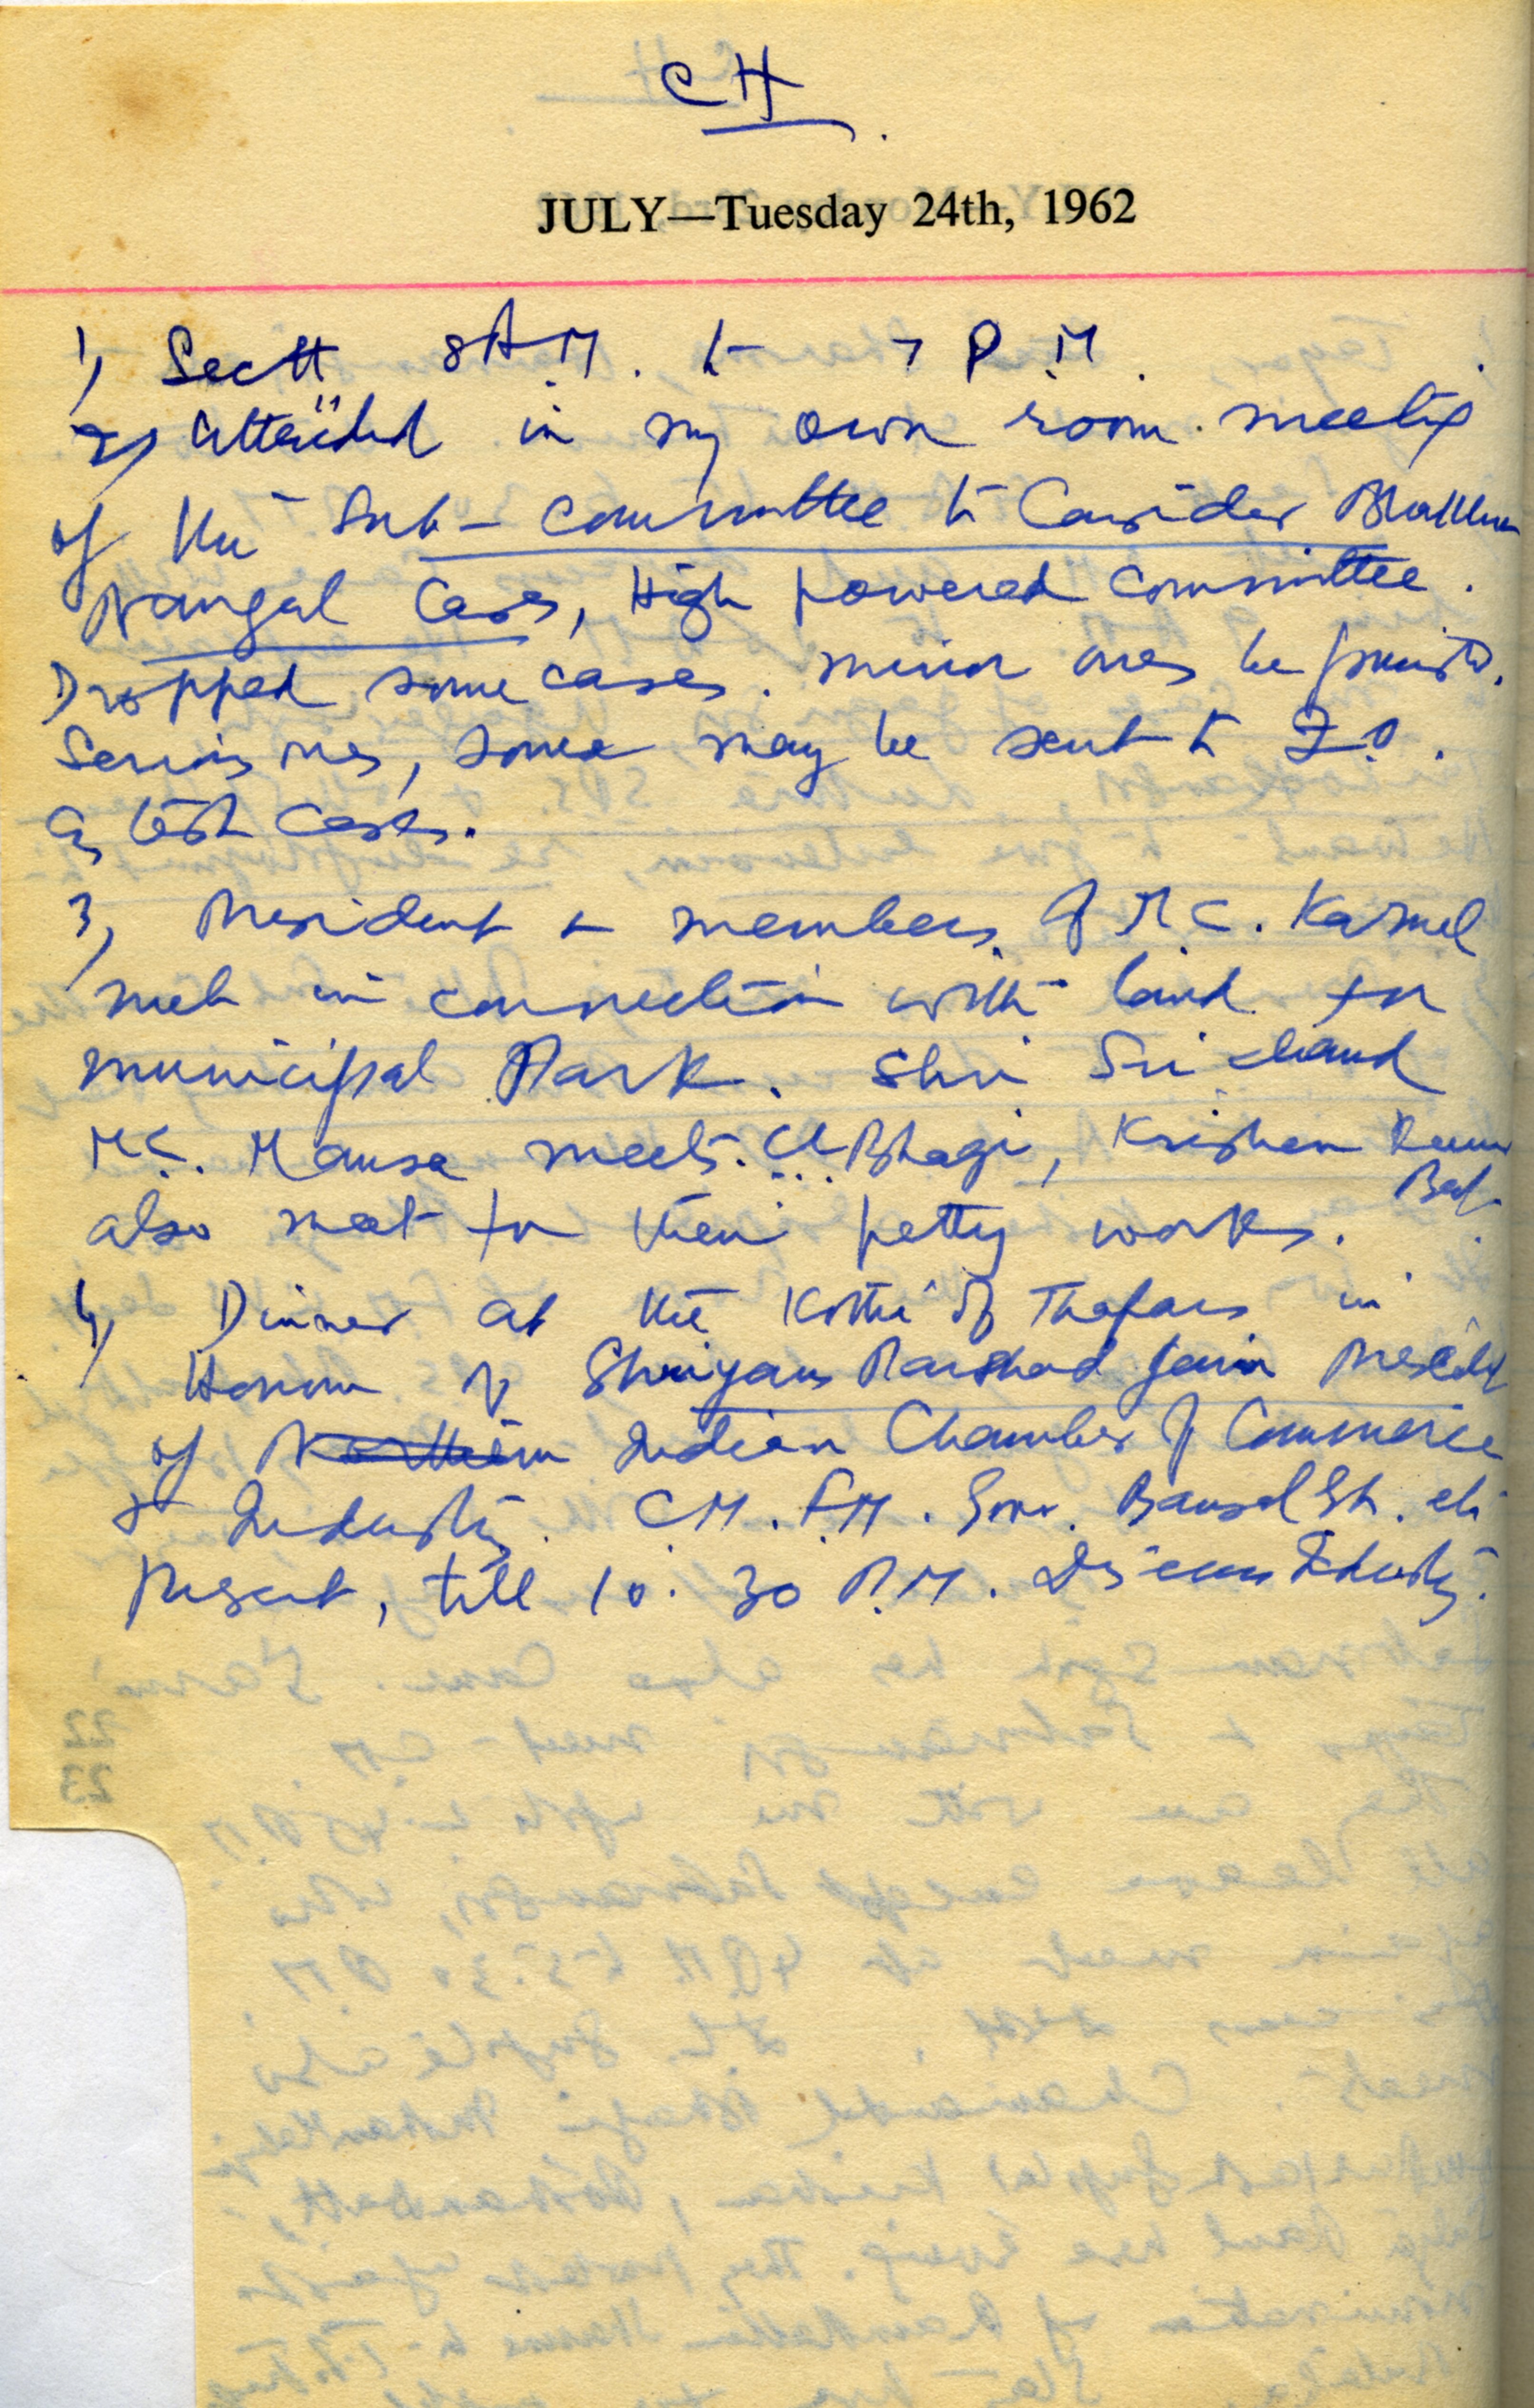 CH
JULY—Tuesday 24th, 1962
1) Sectt 8 A.M. to 7 P.M.
2) Attended in my own room meeting
of the Sub-Committee to Consider Bhakhra
Nangal Cases, High powered Committee.
Dropped some cases. minor ones be punished.
Serious ones, some may be sent to
as test cases.
3) President & members of M.C. Karnal
met in connection with land for
municipal Park. Shri Sri chand
M.C. Mansa meets. Bhagi, Krishan
also met for their petty works.
4) Dinner at the Kothi of Thapars in
Honour of Shriyans Parshad Jain President
of Northern Indian Chamber of Commerce
& Industry. C.M. F.M. Bansal etc
present, till 10.30 P.M. Discuss Industry.
22
23